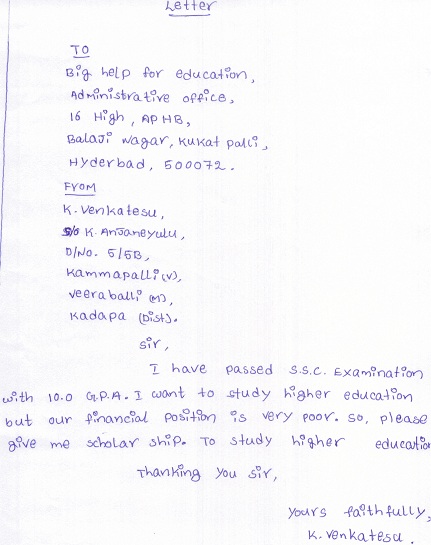 Letter
TO
Big help for education,
Administrative office,
16 High, APHB,
Balaji Nagar, Kukat palli,
Hyderbad, 500072.
FROM
K. Venkatesu,
S/o K. Anjaneyulu,
D/No. 5/5B,
Kammapalli (V),
Veeraballi (M),
Kadapa (Dist).
Sir,
I have passed S.S.C. Examination
with 10.0 G.P.A. I want to study higher education
but our financial position is very poor. So, please
give me scholar ship. To study higher education
Thanking you sir,
yours faithfully,
K. Venkatesu.